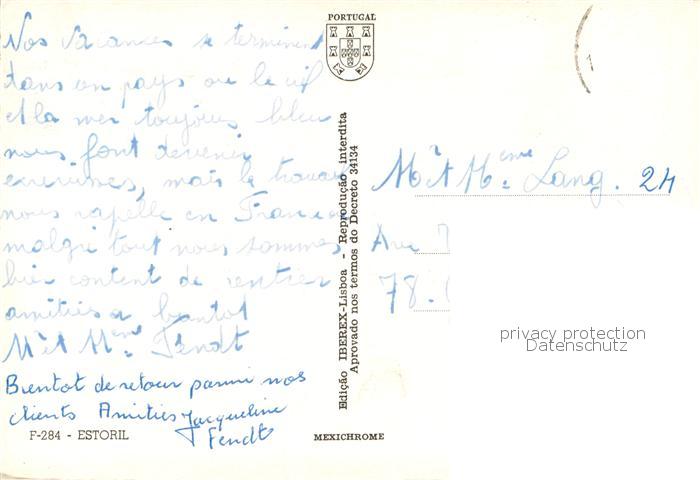 Nos vacances se terminent
dans un pays ou le ciel
et la mer toujours bleu
nous font devenir
mais le travail
nous rapelle en France
malgré tout nous sommes
bien content de rentrer
amitiés a bientot
Mr et Mme Fendt
Bientot de retour parmi nos
clients Amitiés Jacqueline
Fendt
F-284 - ESTORIL
PORTUGAL
Edição IBEREX-Lisboa - Reprodução interdita
Aprovado nos termos do Decreto 34134
MEXICHROME
Mr et Mme Lang. 24
Au
78.
privacy protection
Datenschutz